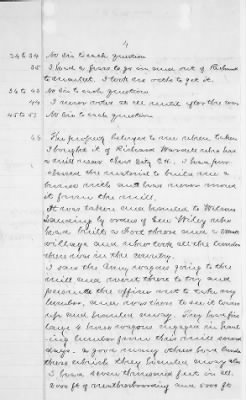 4
24 to 34 No Sir to each question
35 I had a pass to go in and out of Richmond
to market. I took no oath to get it.
36 to 43 No Sir to each questions
44 I never voted at all until after the war
45 to 57 No Sir to each question
68 The property belonges to me when taken
I bought it of Richard who has
a mill near Chas City C.H. I had purchased
the material to build me a
house with and had never moved
it from the mill.
It was taken and hauled to Wilson
Landing by orders of Gen Wiley who
had built a Fort there and a small
village and who took all the lumber
there was in the country.
I saw the Army wagons going to the
mill and went there to try and
persuade the officer not to take my
lumber, and was there to see it taken
up and hauled away. They had five
large 4 horse wagons engaged in hauling
lumber from this mill several
days. A good many others had lumber
there which they hauled away also
I had seven thousand feet in all.
2000 ft of weatherboarding and 5000 ft